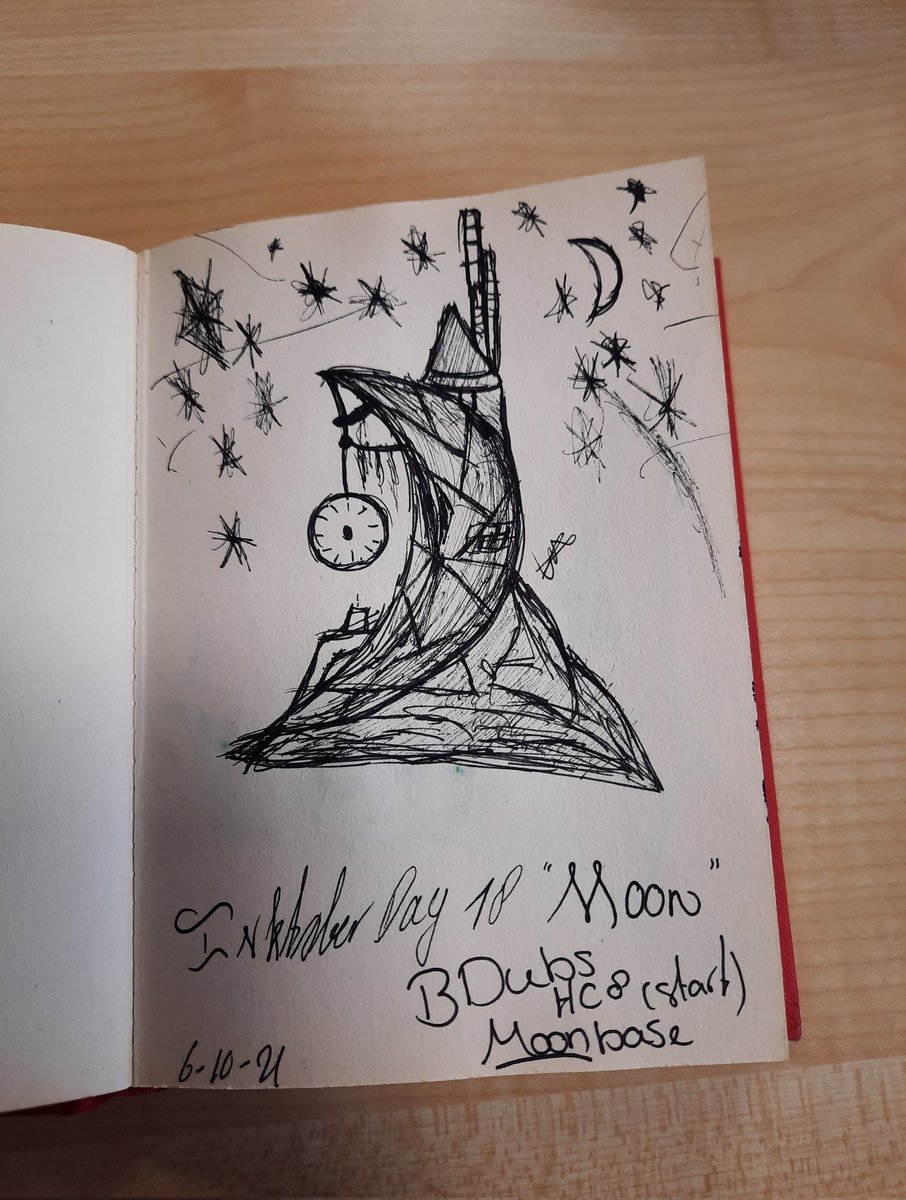 Inktober Day 18 "Moon"
BDubs
HC8 (start)
Moonbase
6-10-21